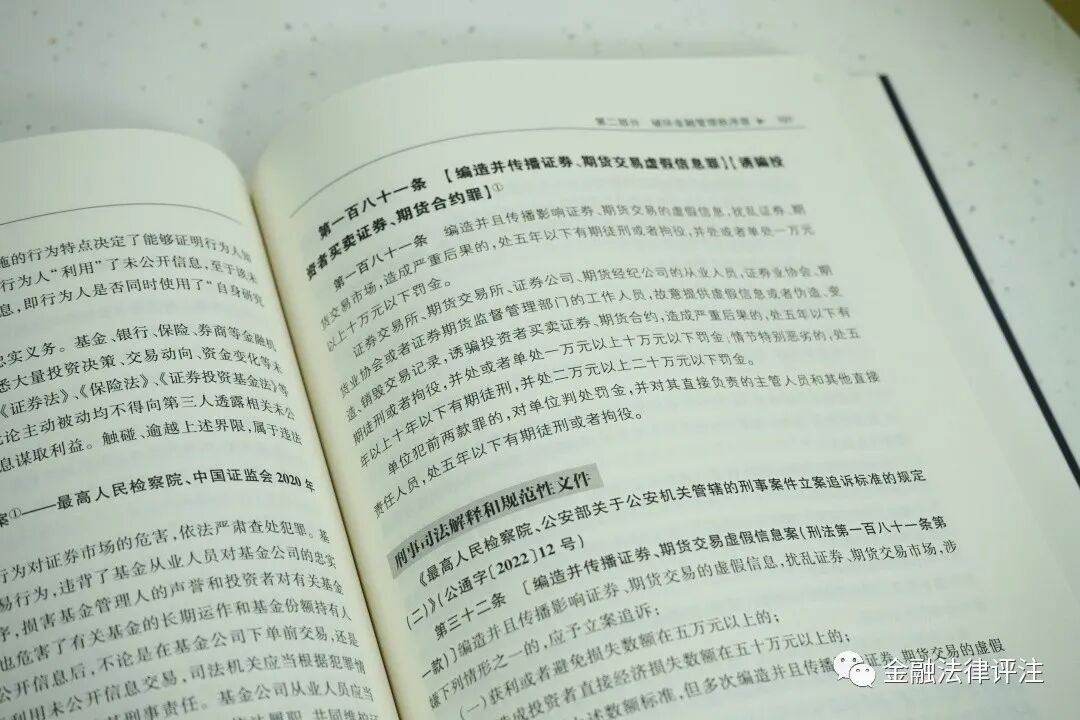 施的行为特点决定了能够证明行为人知
行为人“利用”了未公开信息,至于该未
息,即行为人是否同时使用了“自身研究
忠实义务。基金、银行、保险、券商等金融机
悉大量投资决策、交易动向、资金变化等未
《证券法》、《保险法》、《证券投资基金法》等
论主动被动均不得向第三人透露相关未公
息谋取利益。触碰、逾越上述界限,属于违法
案①——最高人民检察院、中国证监会2020年
行为对证券市场的危害,依法严肃查处犯罪。基
易行为,违背了基金从业人员对基金公司的忠实
序,损害基金管理人的声誉和投资者对有关基金
也危害了有关基金的长期运作和基金份额持有人
公开信息后,不论是在基金公司下单前交易,还是
利用未公开信息交易,司法机关应当根据犯罪情
刑事责任。基金公司从业人员应当
第二部分 破坏金融管理秩序罪
第一百八十一条 【编造并传播证券、期货交易虚假信息罪】【诱骗投
资者买卖证券、期货合约罪】①
第一百八十一条 编造并且传播影响证券、期货交易的虚假信息,扰乱证券、期
货交易市场,造成严重后果的,处五年以下有期徒刑或者拘役,并处或者单处一万元
以上十万元以下罚金。
证券交易所、期货交易所、证券公司、期货经纪公司的从业人员,证券业协会、期
货业协会或者证券期货监督管理部门的工作人员,故意提供虚假信息或者伪造、变
造、销毁交易记录,诱骗投资者买卖证券、期货合约,造成严重后果的,处五年以下有
期徒刑或者拘役,并处或者单处一万元以上十万元以下罚金;情节特别恶劣的,处五
年以上十年以下有期徒刑,并处二万元以上二十万元以下罚金。
单位犯前两款罪的,对单位判处罚金,并对其直接负责的主管人员和其他直接
责任人员,处五年以下有期徒刑或者拘役。
刑事司法解释和规范性文件
《最高人民检察院、公安部关于公安机关管辖的刑事案件立案追诉标准的规定
(二)》(公通字〔2022〕12号)
第三十二条 〔编造并传播证券、期货交易虚假信息案(刑法第一百八十一条第
一款)〕编造并且传播影响证券、期货交易的虚假信息,扰乱证券、期货交易市场,涉
嫌下列情形之一的,应予立案追诉:
(一)获利或者避免损失数额在五万元以上的;
造成投资者直接经济损失数额在五十万元以上的;
上述数额标准,但多次编造并且传播 证券、期货交易的虚假
金融法律评注